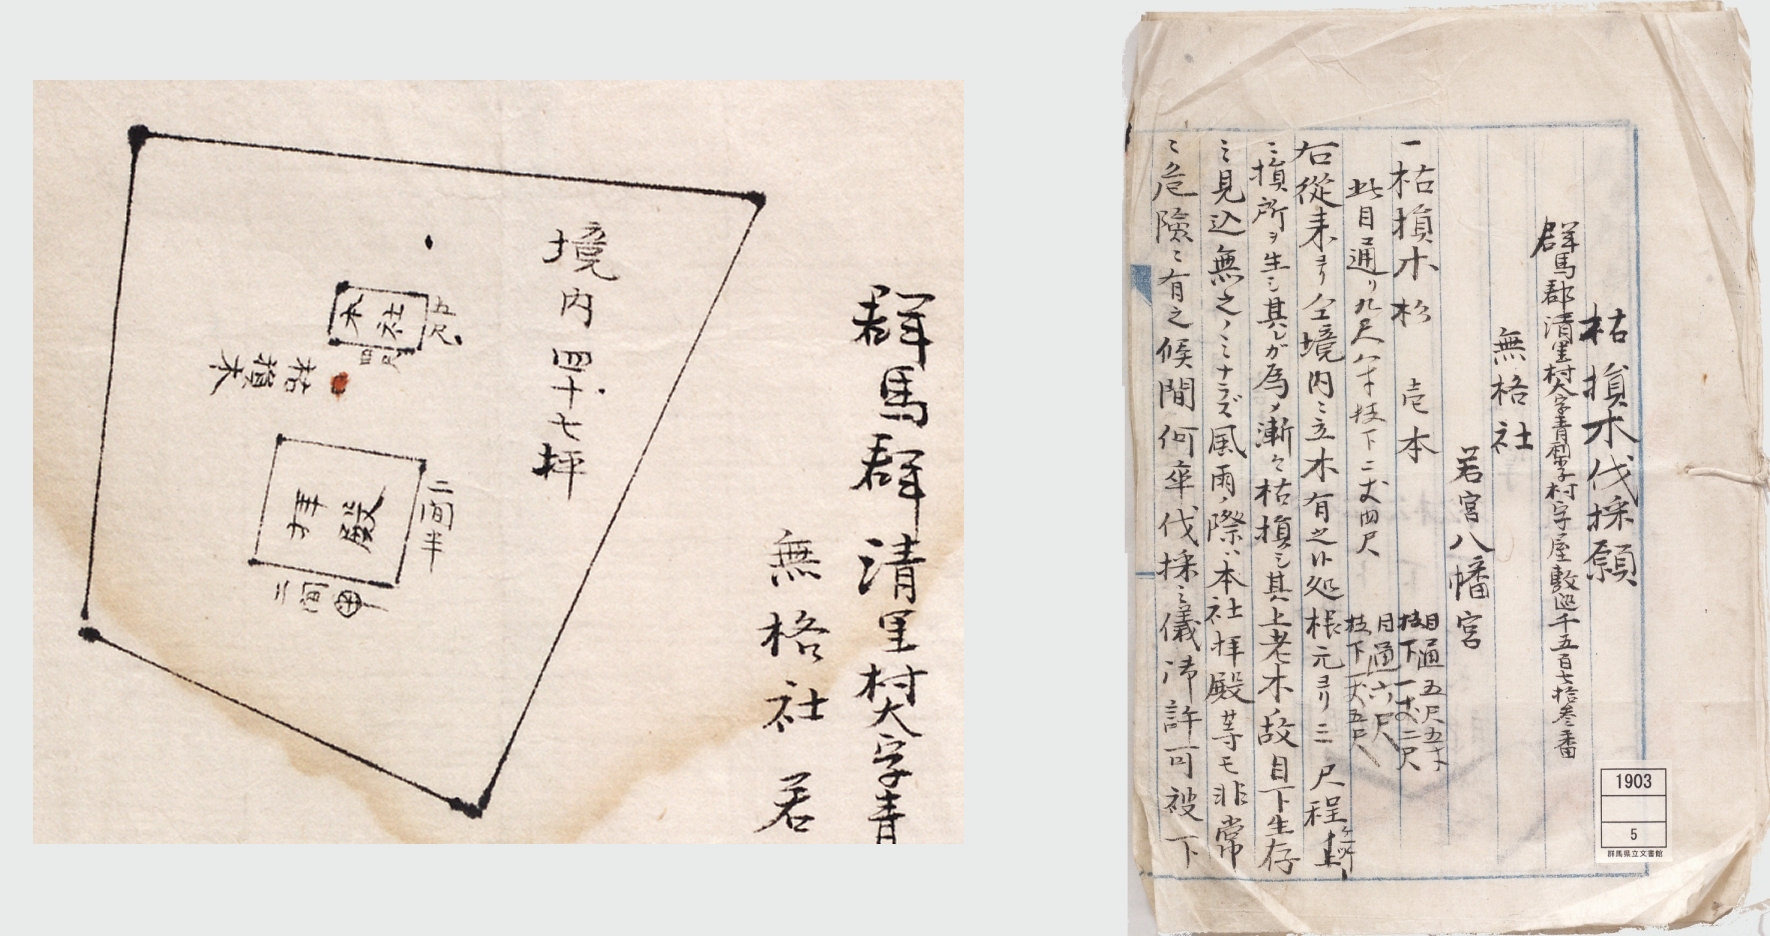 境内四十七坪
本社
五尺
四尺
枯損木
拝殿
二間半
二間
群馬群清里村大字青
無格社 若
枯損木伐採願
群馬郡清里村大字青梨子村字屋敷廻千五百七拾叁番
無格社
若宮八幡宮
一枯損木 松 壱本
目通五尺五寸
枝下一丈二尺
此目通リ九尺八寸 枝下二丈四尺
目通六尺
枝下一丈五尺
右従来ヨリ仝境内ニ立木有之候処根元ヨリ三尺程上
ニ損所ヲ生シ其レガ為メ漸々枯損シ其上老木故目下生存
ノ見込無之ノミナラズ風雨ノ際ハ本社拝殿等モ非常
ニ危険ニ有之候間何卒伐採之儀御許可被下
1903
5
群馬県立文書館